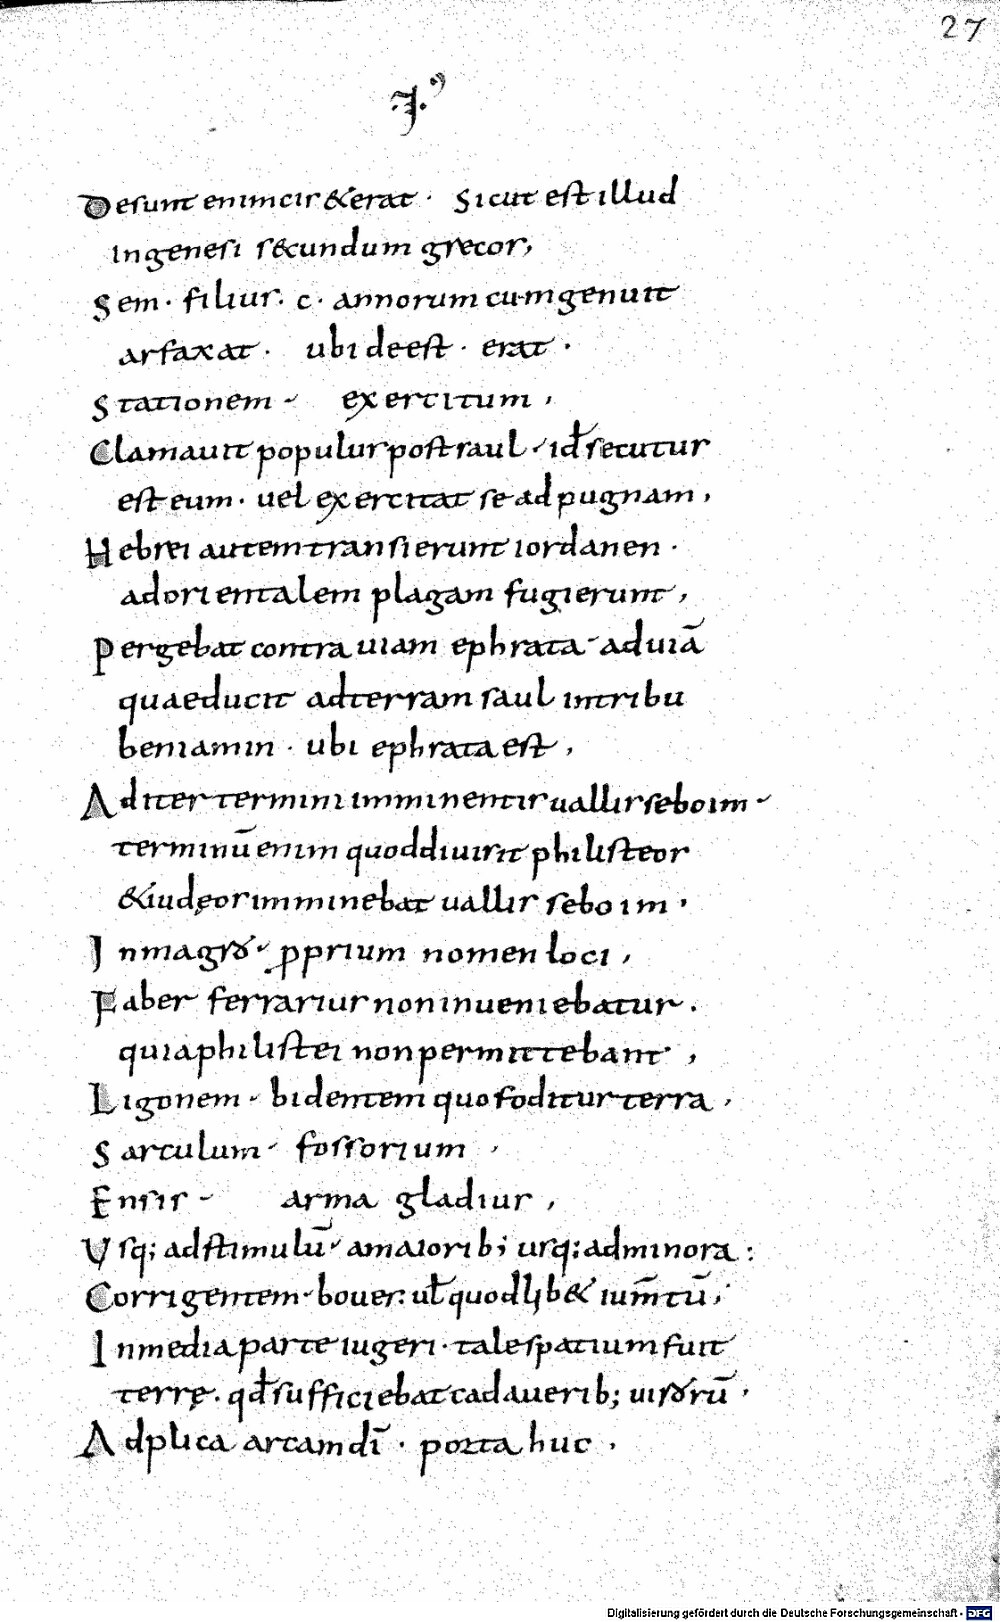 27
.I.
Desunt enim cis & erat · Sicut est illud
Ingenesi s&cundum grecos,
Sem · filius · c · annorum cum genuit
arfaxat · ubi deest · erat ·
Stationem - exercitum ,
Clamauit populus post saul · id̄ secutus
est eum · uel exercitat se ad pugnam ,
Hebrei autem transierunt iordanen ·
ad orientalem plagam fugierunt ,
Pergebat contra uiam ephrata - ad uiā
quae ducit ad terram saul in tribu
beniamin · ubi ephrata est ,
Ad iter termini imminentis uallis seboim -
terminū enim quod diuisit philisteos
& iudęos imminebat uallis seboim ,
In magro - ꝓprium nomen loci ,
Faber ferrarius non inueniebatur .
quia philistei non permittebant ,
Ligonem - bidentem quo foditur terra ,
Sarculum - fossorium ,
Ensis - arma gladius ,
Usq; ad stimulū - a maiorib; usq; ad minora :
Corrigentem - boues . ul̄ quodlib& ium̄tū ,
In media parte iugeri · tale spatium fuit
terrę . qd̄ sufficiebat cadauerib; uisorū ,
Adplica arcam dī · porta huc ,
Digitalisierung gefördert durch die Deutsche Forschungsgemeinschaft - DFG